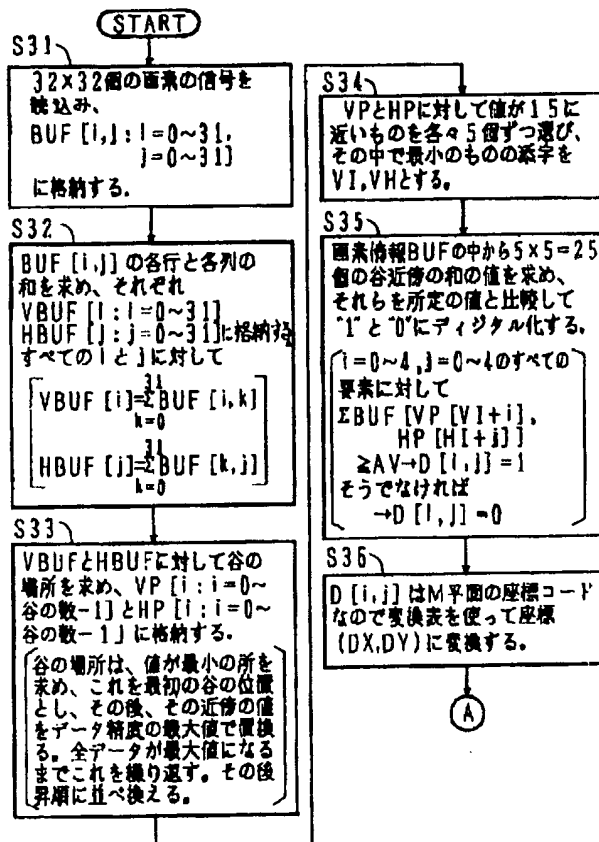 START
S31
32×32個の画素の信号を
読込み、
BUF [i,j : i=0~31,
j=0~31]
に格納する.
S32
BUF [i,j] の各行と各列の
和を求め、それぞれ
VBUF [i : i=0~31]
HBUF [j : j=0~31]に格納する
すべてのiとjに対して
31
VBUF [i]=ΣBUF [i,k]
k=0
31
HBUF [j]=ΣBUF [k,j]
k=0
S33
VBUFとHBUFに対して谷の
場所を求め、VP [i : i=0~
谷の数-1]とHP [i : i=0~
谷の数-1」に格納する。
谷の場所は、値が最小の所を
求め、これを最初の谷の位置
とし、その後、その近傍の値
をデータ精度の最大値で置換
る。全データが最大値になる
までこれを繰り返す。その後
昇順に並べ換える。
S34
VPとHPに対して値が15に
近いものを各々5個ずつ選び、
その中で最小のものの添字を
VI,VHとする。
S35
画素情報BUFの中から5×5=25
個の谷近傍の和の値を求め、
それらを所定の値と比較して
"1"と"0"にディジタル化する。
i=0~4,j=0~4のすべての
要素に対して
ΣBUF [VP [VI+i],
HP [HI+j]]
≧AV→D [i,j] =1
そうでなければ
→D [i,j] =0
S36
D [i,j] はM平面の座標コード
なので変換表を使って座標
(DX,DY)に変換する。
A